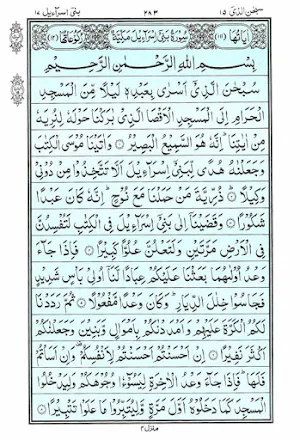 سبحن الذی ۱۵ ۲۸۳ بنی اسرآءیل ۱۷
اٰیاتها ۱۱۱ سُوْرَةُ بَنِیْۤ اِسْرَآءِیْلَ مَكِّیَّةٌ رُكُوْعَاتُهَا ۱۲
بِسْمِ اللّٰهِ الرَّحْمٰنِ الرَّحِیْمِ
سُبْحٰنَ الَّذِیْۤ اَسْرٰی بِعَبْدِهٖ لَیْلًا مِّنَ الْمَسْجِدِ
الْحَرَامِ اِلَی الْمَسْجِدِ الْاَقْصَا الَّذِیْ بٰرَكْنَا حَوْلَهٗ لِنُرِیَهٗ
مِنْ اٰیٰتِنَا ؕ اِنَّهٗ هُوَ السَّمِیْعُ الْبَصِیْرُ ۝ وَاٰتَیْنَا مُوْسَی الْكِتٰبَ
وَجَعَلْنٰهُ هُدًی لِّبَنِیْۤ اِسْرَآءِیْلَ اَلَّا تَتَّخِذُوْا مِنْ دُوْنِیْ
وَكِیْلًا ۝ ذُرِّیَّةَ مَنْ حَمَلْنَا مَعَ نُوْحٍ ؕ اِنَّهٗ كَانَ عَبْدًا
شَكُوْرًا ۝ وَقَضَیْنَاۤ اِلٰی بَنِیْۤ اِسْرَآءِیْلَ فِی الْكِتٰبِ لَتُفْسِدُنَّ
فِی الْاَرْضِ مَرَّتَیْنِ وَلَتَعْلُنَّ عُلُوًّا كَبِیْرًا ۝ فَاِذَا جَآءَ
وَعْدُ اُوْلٰىهُمَا بَعَثْنَا عَلَیْكُمْ عِبَادًا لَّنَاۤ اُولِیْ بَاْسٍ شَدِیْدٍ
فَجَاسُوْا خِلٰلَ الدِّیَارِ ؕ وَكَانَ وَعْدًا مَّفْعُوْلًا ۝ ثُمَّ رَدَدْنَا
لَكُمُ الْكَرَّةَ عَلَیْهِمْ وَاَمْدَدْنٰكُمْ بِاَمْوَالٍ وَّبَنِیْنَ وَجَعَلْنٰكُمْ
اَكْثَرَ نَفِیْرًا ۝ اِنْ اَحْسَنْتُمْ اَحْسَنْتُمْ لِاَنْفُسِكُمْ ۫ وَاِنْ اَسَاْتُمْ
فَلَهَا ؕ فَاِذَا جَآءَ وَعْدُ الْاٰخِرَةِ لِیَسُوْٓءٗا وُجُوْهَكُمْ وَلِیَدْخُلُوا
الْمَسْجِدَ كَمَا دَخَلُوْهُ اَوَّلَ مَرَّةٍ وَّلِیُتَبِّرُوْا مَا عَلَوْا تَتْبِیْرًا ۝
منزل ۴